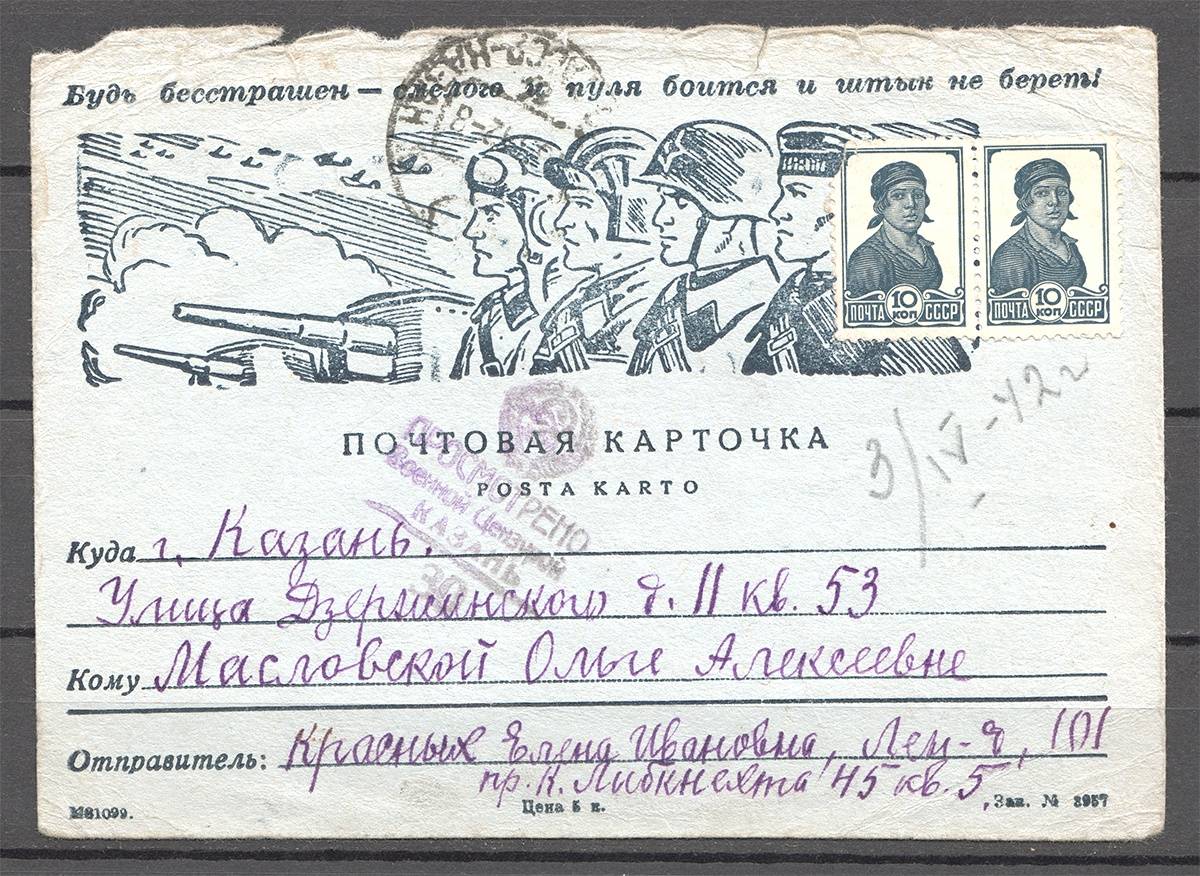 Будь бесстрашен — смелого и пуля боится и штык не берет!
ПОЧТА 10 КОП СССР
ПОЧТА 10 КОП СССР
3/IV-42г
ПОЧТОВАЯ КАРТОЧКА
POSTA KARTO
ПРОСМОТРЕНО
Военной Цензурой
КАЗАНЬ
Куда г. Казань.
Улица Дзержинского д. 11 кв. 53
Кому Масловской Ольге Алексеевне
Отправитель: Красных Елена Ивановна, Лен-д, 101
пр. К. Либкнехта 45 кв. 5
М61099.
Цена 5 к.
Зак. № 3957